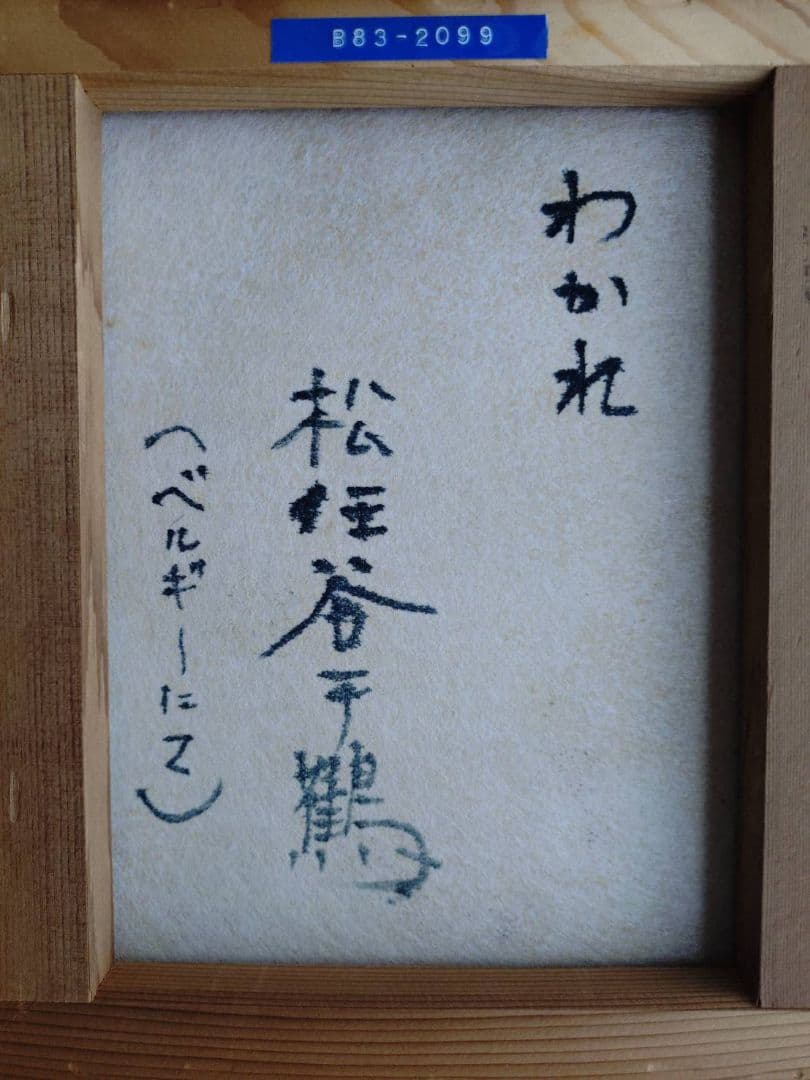 B83-2099
わかれ
松任谷千鶴子
(ベルギーにて)